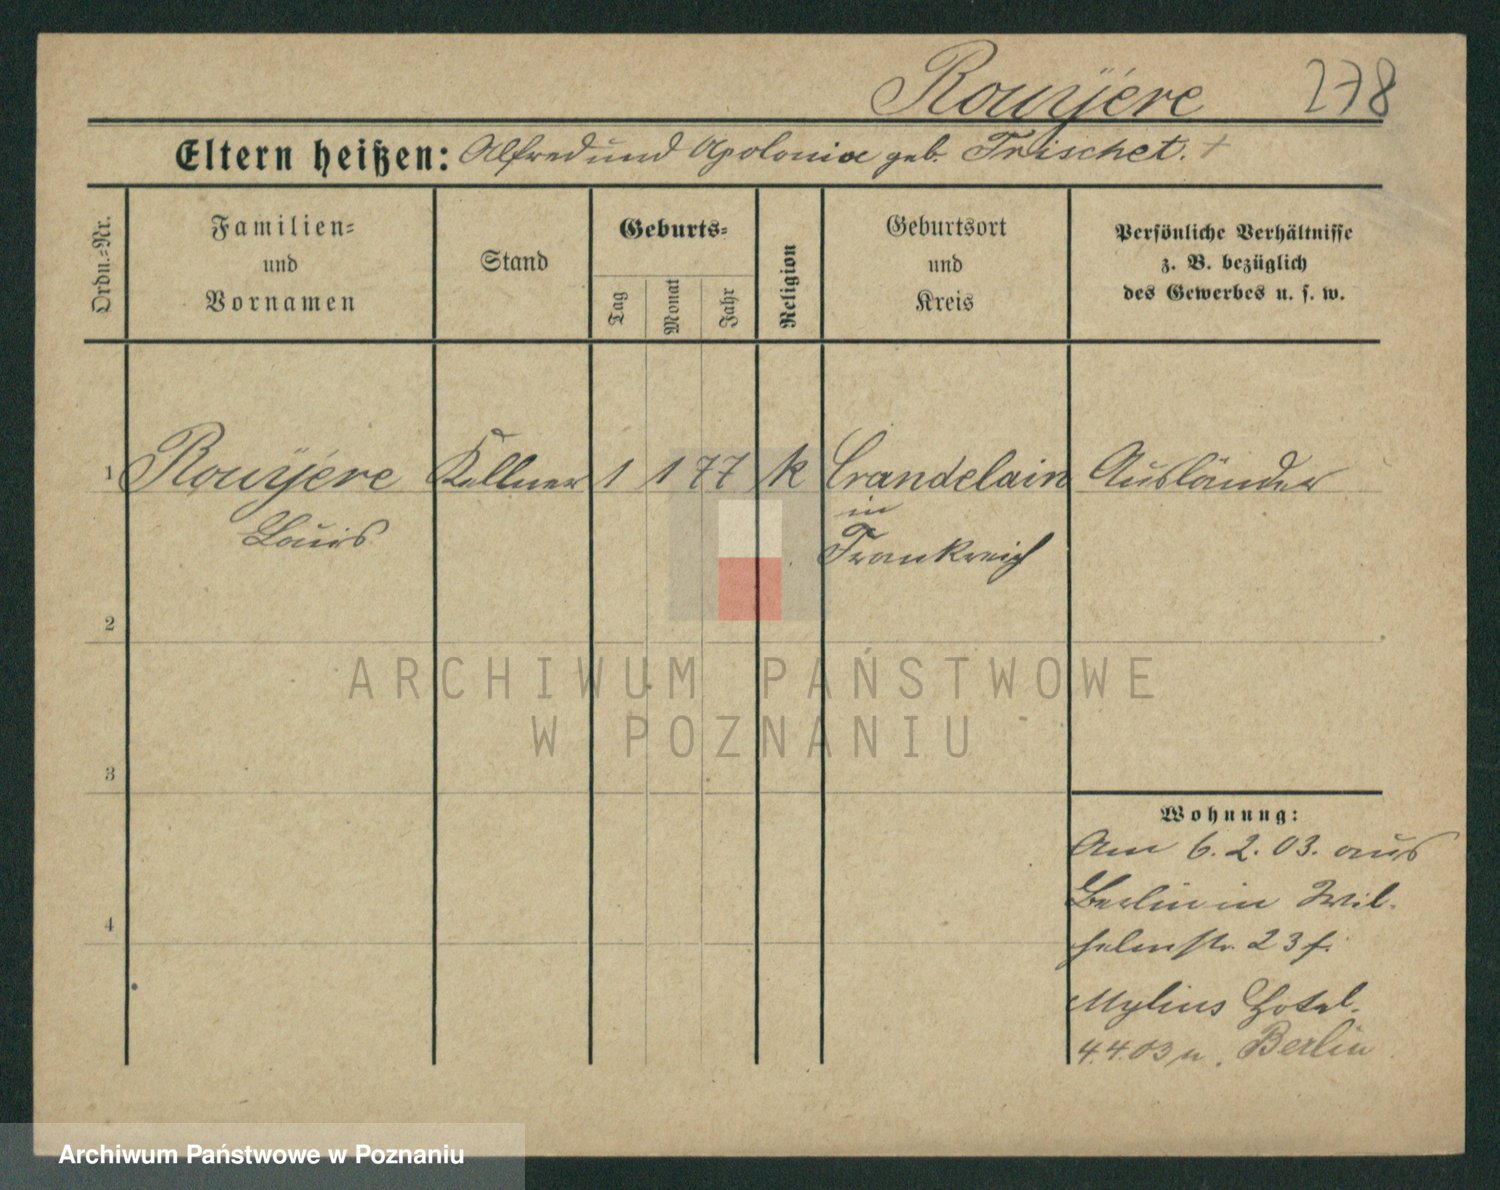 Rouyère 278
Eltern heißen: Alfred und Apolonia geb. Frischet. +
Ordn.-Nr.
Familien-
und
Vornamen
Stand
Geburts-
Tag
Monat
Jahr
Religion
Geburtsort
und
Kreis
Persönliche Verhältnisse
z. B. bezüglich
des Gewerbes u. s. w.
1 Rouyère Kellner 1 1 77 k Crandelain Ausländer
Louis in
Frankreich
2
3
4
Wohnung:
Am 6. 2. 03. aus
Berlin in Wil-
helmstr. 23 f.
Mylius Hotel.
4.4.03 n. Berlin
ARCHIWUM PAŃSTWOWE
W POZNANIU
Archiwum Państwowe w Poznaniu